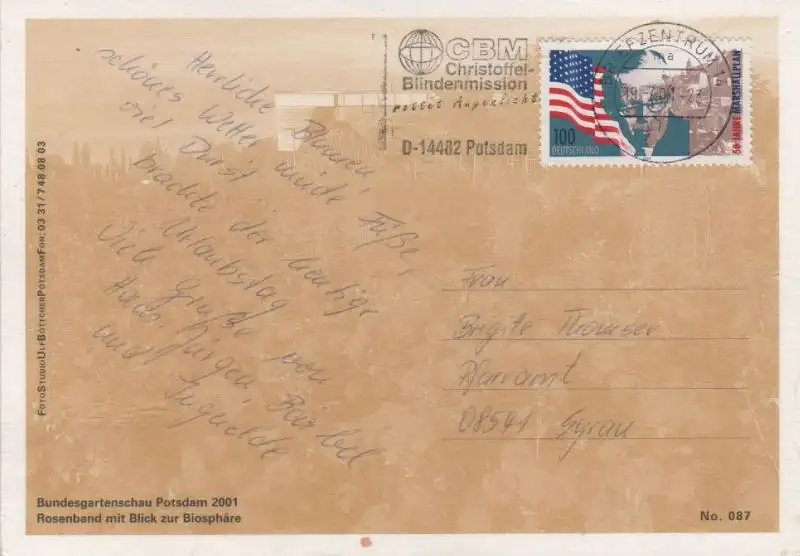 Herrliche Blumen,
schönes Wetter müde Füße,
viel Durst
brachte der heutige
Urlaubstag
Viele Grüße von
Hans-Jürgen, Bärbel
und
CBM
Christoffel-
Blindenmission
rettet Augenlicht
D-14482 Potsdam
BRIEFZENTRUM 14
100
DEUTSCHLAND
50 JAHRE MARSHALLPLAN
Frau
Brigitte Thomser
Pfarramt
08541 Syrau
FOTOSTUDIO ULF BÖTTCHER POTSDAM FON: 03 31/7 48 08 03
Bundesgartenschau Potsdam 2001
Rosenband mit Blick zur Biosphäre
No. 087